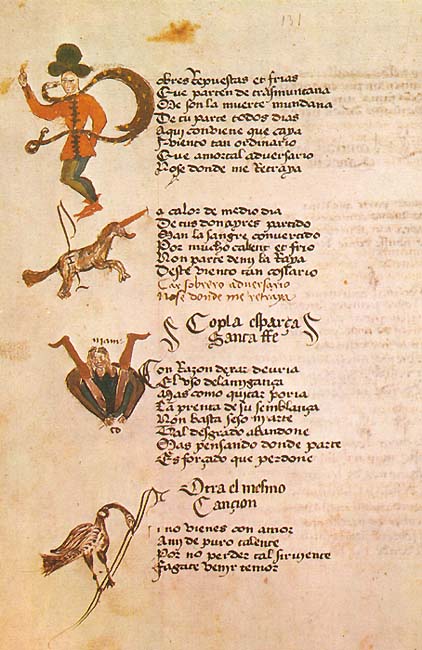 131
obres Repuestas et frias
Que parten de trasmuntana
Me son la muerte mundana
De tu parte todos dias
Aqui conviene que caya
Viento tan ordinario
Que amortal adversario
Nose donde me Retraya
a calor de medio dia
De tus donayres partido
Han la sangre convertido
Por mucho calent et frio
Non parte de mi la Raya
Deste viento tan coslario
Cay sobrero adversario
Nose donde me retraya
Copla esparça
Santa ffe
Con Razon deraz devria
El uso delanygança
Mas como quitar poria
La prenta de su semblança
Non basta seso ni arte
Tal desgrado abandone
Mas pensando donde parte
Es forçado que perdone
Otra el mesmo
Cançion
i no vienes con amor
Amj de puro talente
Por no perder tal sirviente
Fagate venyr temor